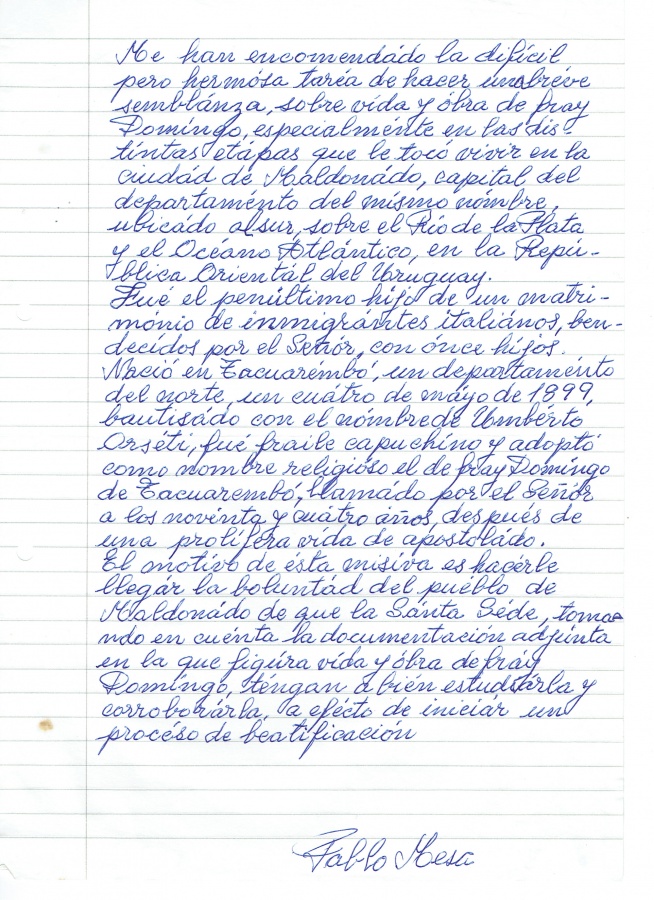 Me han encomendádo la difícil
pero hermósa taréa de hacer una bréve
semblánza, sobre vída y óbra de fray
Domíngo, especialménte en las dis-
tíntas etápas que le tocó vivír en la
ciudád de Maldonádo, capital del
departaménto del mísmo nómbre,
ubicádo al sur, sobre el Río de la Plata
y el Océano Atlántico, en la Repú-
blica Orientál del Uruguay.
Fué el penúltimo híjo de un matri-
mónio de inmigrántes italiános, ben-
decídos por el Señór, con ónce hijos.
Nació en Tacuarembó, un departaménto
del norte, un cuátro de máyo de 1899,
bautisádo con el nómbre de Umbérto
Orséti, fué fraile capuchíno y adoptó
como nombre religióso el de fray Domíngo
de Tacuarembó, llamádo por el Señór
a los novénta y cuátro áños, después de
una prolífera vída de apostoládo.
El motívo de ésta misíva es hacérle
llegár la boluntád del puéblo de
Maldonádo de que la Sánta Séde, toma-
ndo en cuénta la documentación adjúnta
en la que figúra vída y óbra de fráy
Domíngo, téngan a bién estudiárla y
corroborárla, a efécto de iniciár un
procéso de beatificación
Pablo Mesa